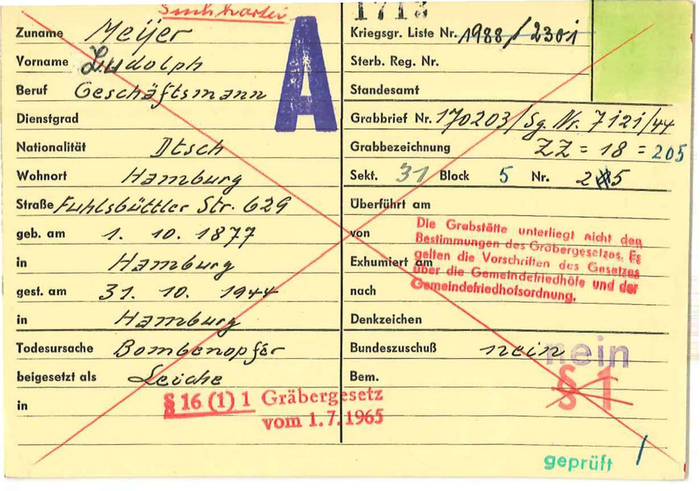 Suchkartei
1713
Zuname Meijer
Vorname Ludolph
Beruf Geschäftsmann
Dienstgrad
Nationalität Dtsch
Wohnort Hamburg
Straße Fuhlsbüttler Str. 629
geb. am 1. 10. 1877
in Hamburg
gest. am 31. 10. 1944
in Hamburg
Todesursache Bombenopfer
beigesetzt als Leiche
in
§ 16 (1) 1 Gräbergesetz
vom 1.7.1965
A
Kriegsgr. Liste Nr. 1988/2301
Sterb. Reg. Nr.
Standesamt
Grabbrief Nr. 170203/Sg. Nr. 7121/44
Grabbezeichnung ZZ = 18 = 205
Sekt. 31 Block 5 Nr. 5
Überführt am
von
Exhumiert am
nach
Die Grabstätte unterliegt nicht den
Bestimmungen des Gräbergesetzes. Es
gelten die Vorschriften des Gesetzes
über die Gemeindefriedhöfe und der
Gemeindefriedhofsordnung.
Denkzeichen
Bundeszuschuß nein nein
Bem. § 1
geprüft